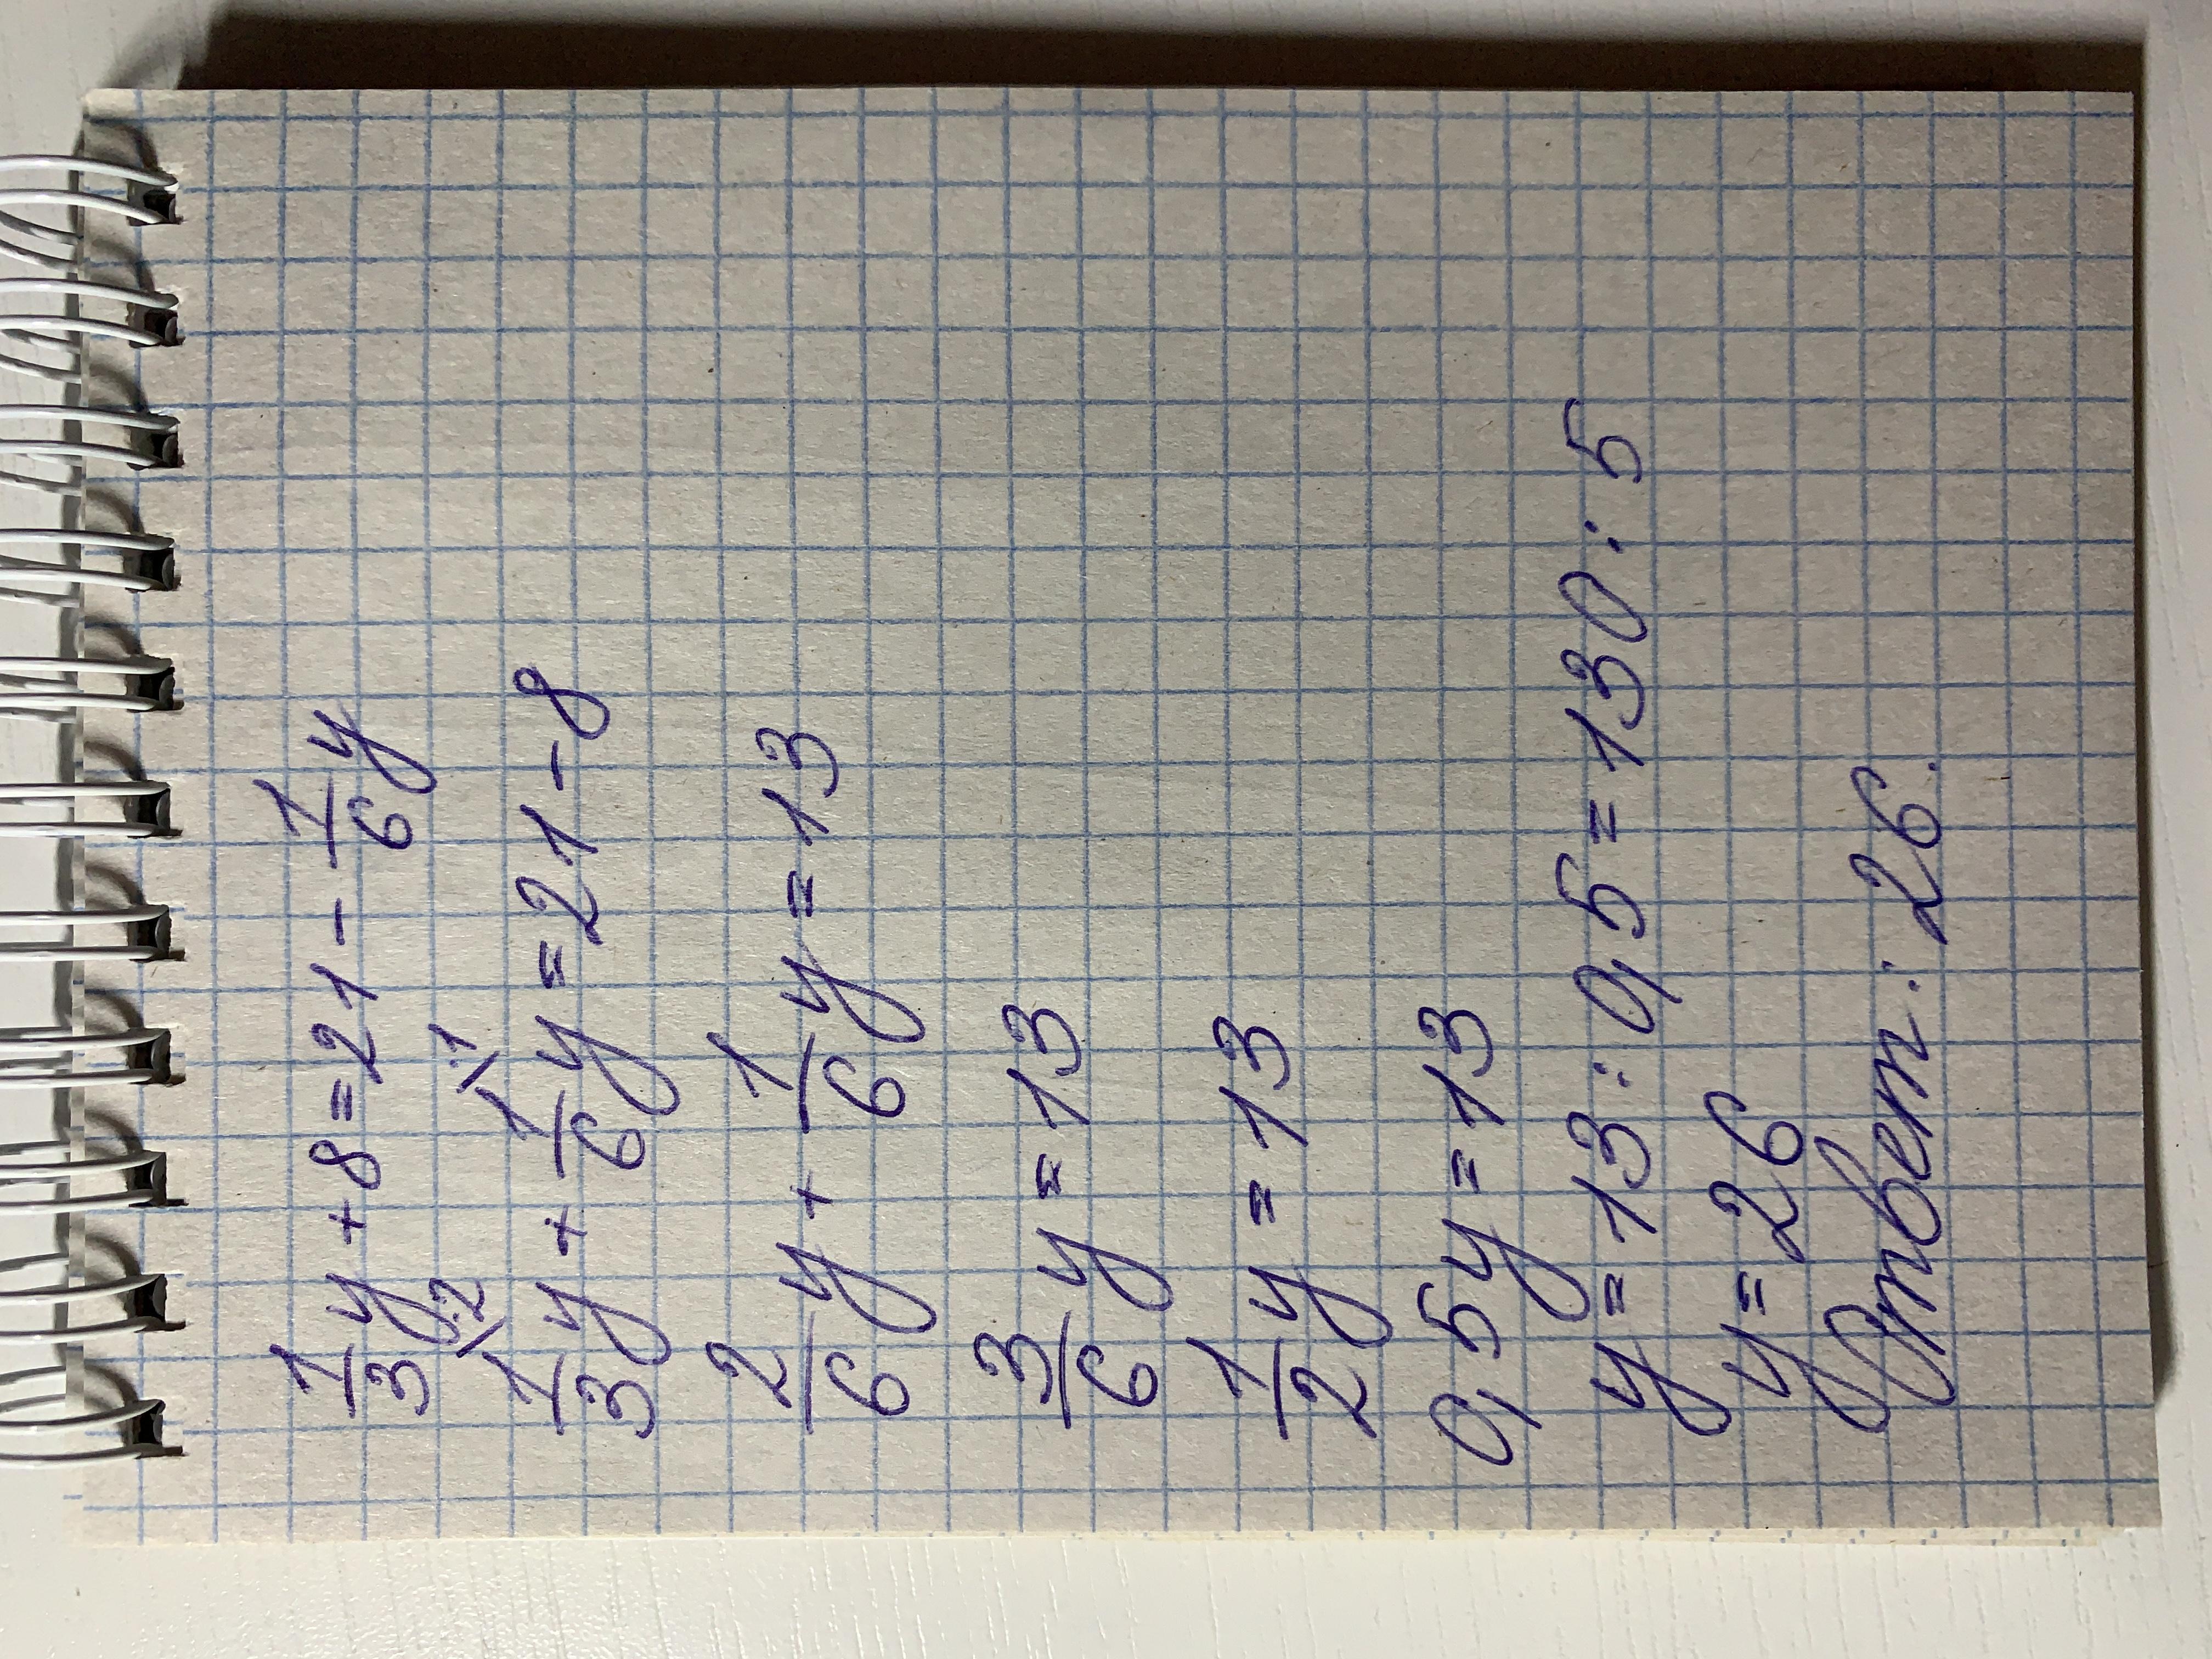 1/3 y + 8 = 21 - 1/6 y
1/3 \·2 y + 1/6 \·1 y = 21 - 8
2/6 y + 1/6 y = 13
3/6 y = 13
1/2 y = 13
0,5y = 13
y = 13 : 0,5 = 130 : 5
y = 26
Ответ: 26.